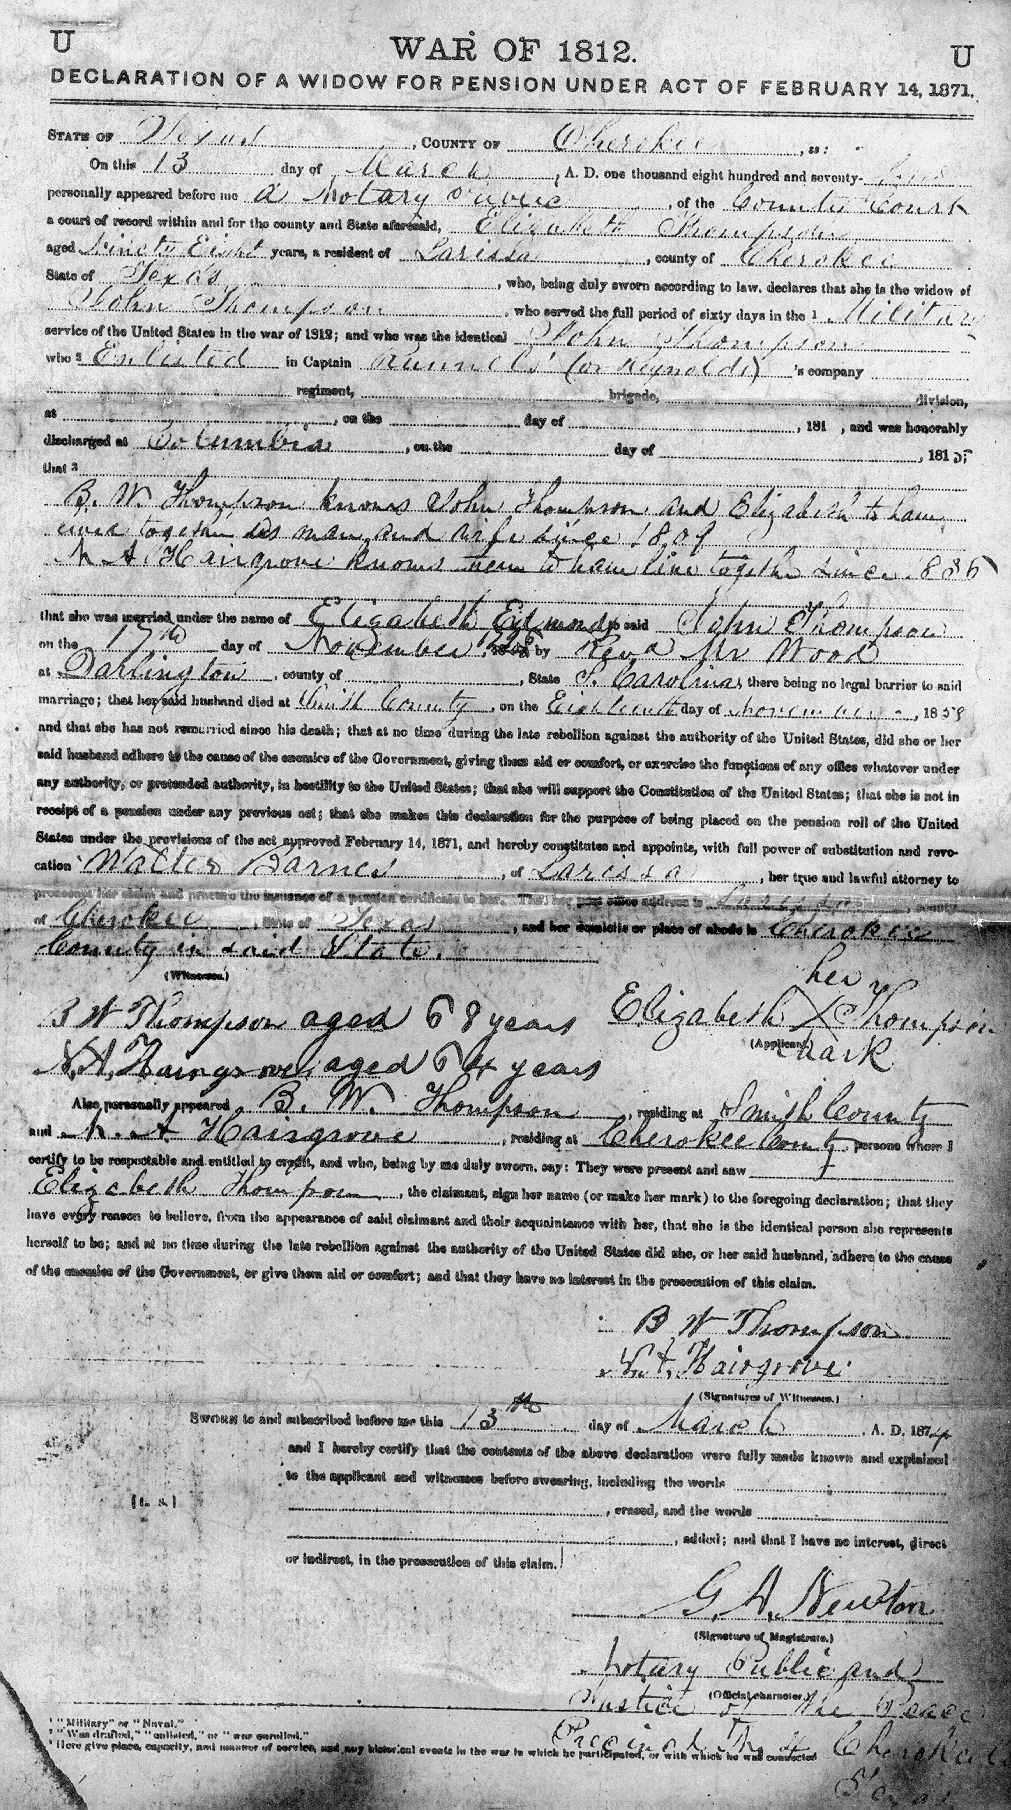 U WAR OF 1812. U
DECLARATION OF A WIDOW FOR PENSION UNDER ACT OF FEBRUARY 14, 1871.
STATE OF Texas, COUNTY OF Cherokee, ss:
On this 13 day of March, A. D. one thousand eight hundred and seventy-
personally appeared before me a Notary Public, of the County Court
a court of record within and for the county and State aforesaid, Elizabeth Thompson
aged Ninety Eight years, a resident of Larissa, county of Cherokee
State of Texas, who, being duly sworn according to law, declares that she is the widow of
John Thompson, who served the full period of sixty days in the 1 Military
service of the United States in the war of 1812; and who was the identical John Thompson
who 2 Enlisted in Captain Runnels' (or Reynolds) 's company
regiment, brigade, division,
at , on the day of , 181 , and was honorably
discharged at Columbia, on the day of , 1815
that 3
B. W. Thompson knows John Thompson and Elizabeth to have
lived together as man and wife since 1809
N A. Hairgrove knows them to have live together since 1836
that she was married under the name of Elizabeth Edmonds to said John Thompson
on the 17th day of November, by Revd Mr Wood
at Darlington, county of , State S. Carolina, there being no legal barrier to said
marriage; that her said husband died at Smith County, on the Eighteenth day of November, 1859
and that she has not remarried since his death; that at no time during the late rebellion against the authority of the United States, did she or her
said husband adhere to the cause of the enemies of the Government, giving them aid or comfort, or exercise the functions of any office whatever under
any authority, or pretended authority, in hostility to the United States; that she will support the Constitution of the United States; that she is not in
receipt of a pension under any previous act; that she makes this declaration for the purpose of being placed on the pension roll of the United
States under the provisions of the act approved February 14, 1871, and hereby constitutes and appoints, with full power of substitution and revo-
cation Walter Barnes, of Larissa, her true and lawful attorney to
prosecute her claim and procure the issuance of a pension certificate to her. That her post office address is Larissa, county
of Cherokee, State of Texas, and her domicile or place of abode is Cherokee
County in said State.
(Witnesses)
B W Thompson aged 68 years
N. A. Hairgrove aged 64 years
her
Elizabeth X Thompson
(Applicant.)
mark
Also personally appeared B. W. Thompson, residing at Smith County
and N. A Hairgrove, residing at Cherokee County persons whom I
certify to be respectable and entitled to credit, and who, being by me duly sworn, say: They were present and saw
Elizabeth Thompson, the claimant, sign her name (or make her mark) to the foregoing declaration; that they
have every reason to believe, from the appearance of said claimant and their acquaintance with her, that she is the identical person she represents
herself to be; and at no time during the late rebellion against the authority of the United States did she, or her said husband, adhere to the cause
of the enemies of the Government, or give them aid or comfort; and that they have no interest in the prosecution of this claim.
B W Thompson
N. A. Hairgrove
(Signatures of Witnesses.)
SWORN to and subscribed before me this 13th day of March, A. D. 1874
and I hereby certify that the contents of the above declaration were fully made known and explained
to the applicant and witnesses before swearing, including the words
[L. S.] , erased, and the words
, added; and that I have no interest, direct
or indirect, in the prosecution of this claim.
G. A. Newton
(Signature of Magistrate.)
Notary Public and
(Official character.)
Justice of the Peace
Precinct No 4 Cherokee Co
Texas
1 "Military" or "Naval."
2 "Was drafted," "enlisted," or "was enrolled."
3 Here give place, capacity, and manner of service, and any historical events in the war in which he participated, or with which he was connected